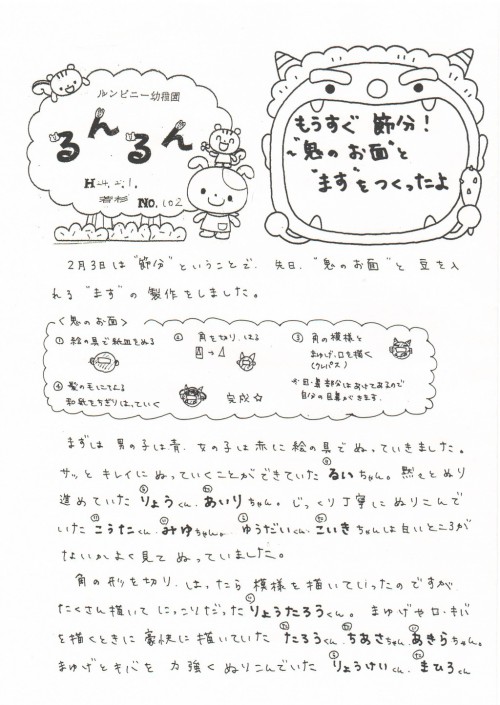 ルンビニー幼稚園
るんるん
H24.2.1.
若杉 No.102
もうすぐ 節分!
"鬼のお面"と
"ます"をつくったよ
2月3日は"節分"ということで、先日、"鬼のお面"と 豆を入
れる"ます"の製作をしました。
<鬼のお面>
① 絵の具で紙皿をぬる
② 角を切り、はる
③ 角の模様と
まゆげ、口を描く
(クレパス)
④ 髪の毛にみたてた
和紙をちぎりはっていく
完成☆
自分の目鼻ができます。
まずは 男の子は青、女の子は赤に絵の具でぬっていきました。
サッと キレイに ぬっていくことができていた るいちゃん。黙々とぬり
進めていた りょうくん、あいりちゃん。じっくり丁寧に ぬりこんで
いた こうたくん、みゆちゃん。ゆうだいくん、こいきちゃんは白いところが
ないか よく見て ぬっていました。
角の形を切り、はったら 模様を描いていったのですが、
たくさん描いて にっこりだった りょうたろうくん。まゆげや口・キバ
を描くときに 豪快に描いていた たろうくん、ちあさちゃん、あきらちゃん。
まゆげとキバを 力強く ぬりこんでいた りょうけいくん、まひろくん